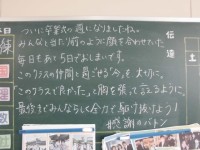 ついに卒業式の週になりましたね。
みんなと当たり前のように顔を合わせていた
毎日もあと5日でおしまいです。
このクラスの仲間と過ごせる“今”を大切に。
「このクラスで良かった」と胸を張って言えるように
最後までみんならしく全力で駆け抜けよう!
#感謝のバトン
伝達
土